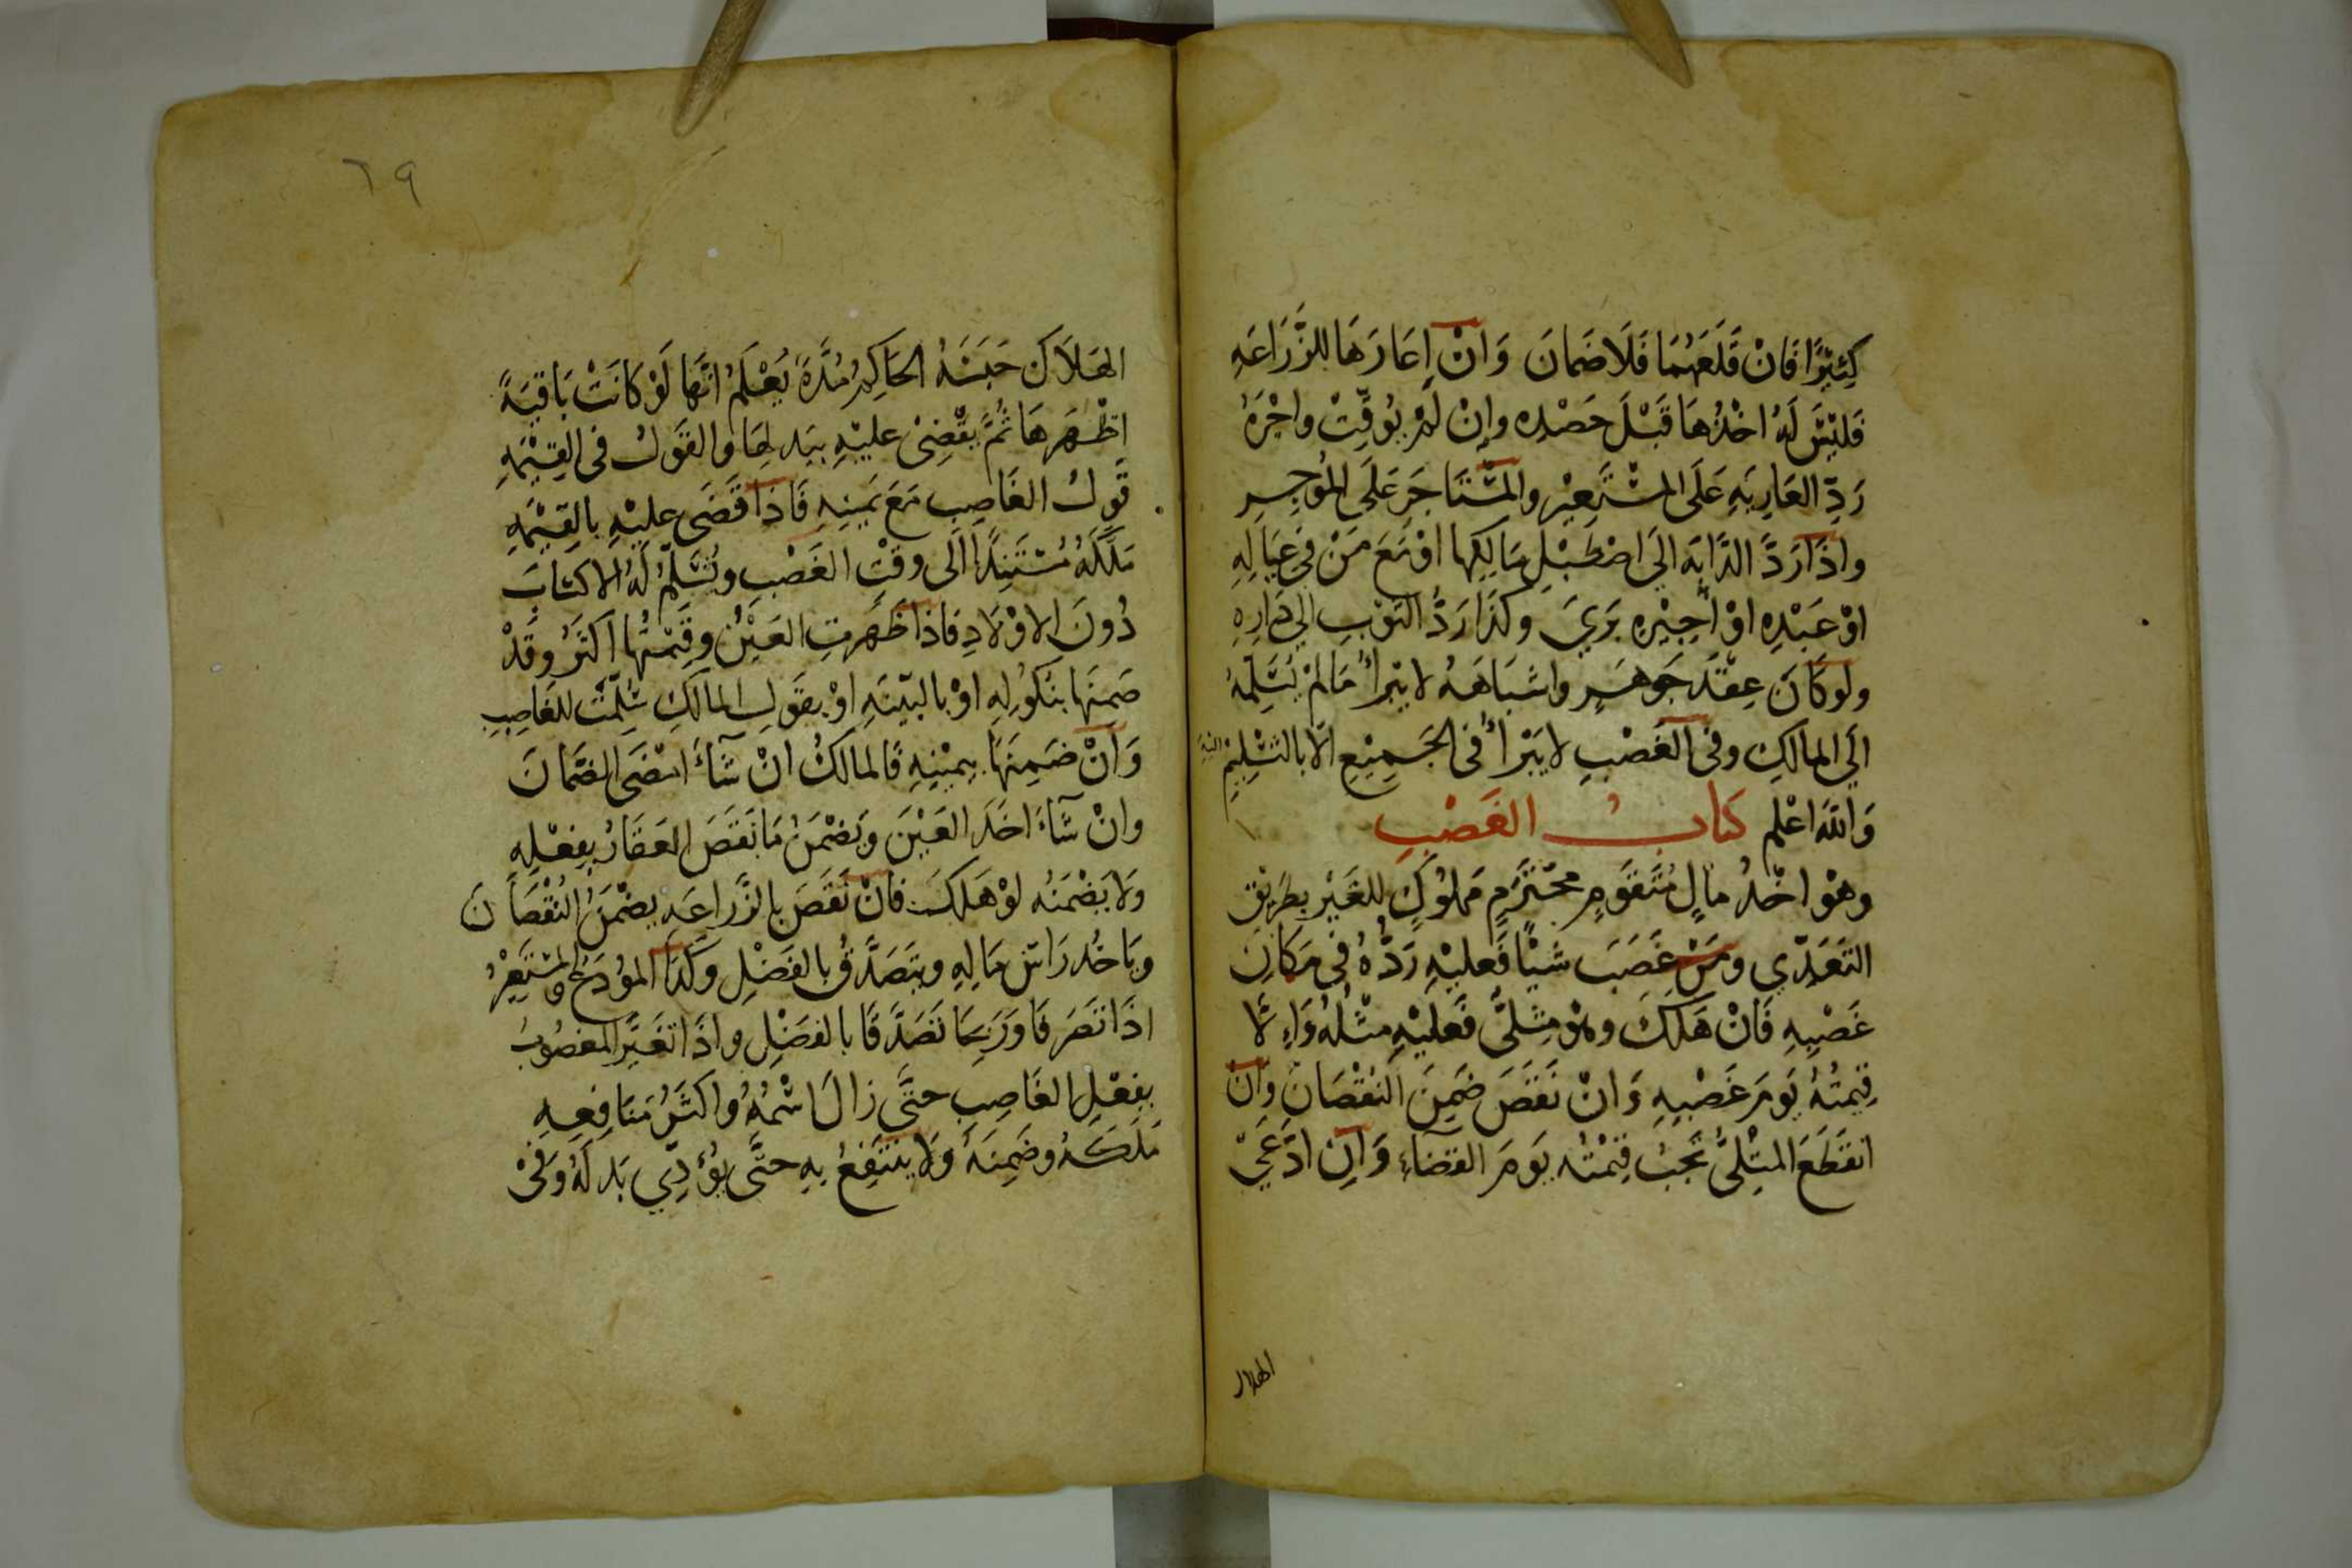 كَثِيْرًا فَانْ قَلَعَهُمَا فَلَا ضَمانَ وَانْ اِعَارَهَا للزَّرَاعَهِ
فَليْسَ لَهُ اخْذُهَا قَبْلَ حَصْدِهِ وإنْ لَمْ يُوَقِّتْ واجْرَهُ
رَدِّ العَارِيَهِ عَلَى المُسْتَعِيْرِ والمسْتَاجَرِ عَلَى المُوجِرِ
واذَا رَدَّ الدَّابَه اليَ اصْطَبْلِ مَالِكِها اوْ مَعَ مَنْ فِي عِيَالِهِ
اوْ عَبْدِهِ اوْ اَجِيْرِهِ بَرَيَ وكَذَا رَدُّ الثوْبِ اليَ دَارِهِ
ولو كَانَ عِقْدَ جَوهَرٍ واشبَاهَهُ لا يَبْرأُ مَا لمْ يُسَلِّمْهُ
اليَ المالكِ وفى الغَصْبِ لا يَبْرَأُ فى الجَمِيْعِ الّا بالتسْلِيْمِ اليه
وَاللّه اعْلم كتابُ الغَصْبِ
وهُو اخْذُ مالٍ مُتَقَومٍ محْتَرَمٍ مَملُوْكٍ للغَيْرِ بطَرِيْقِ
التعَدِّي ومَنْ غَصَبَ شيْئًا فَعليْهِ رَدُّهُ فِي مَكَانِ
غَصْبِهِ فَانْ هَلَكَ وهُوَ مِثلىٌّ فَعليْهِ مثْلُهُ وَاِلَّا
قِيمتُهُ يَومَ غَصْبِهِ وَانْ نَقَصَ ضَمِنَ النُقْصَانَ وانْ
انقَطَعَ المثْلىُّ تَجبُ قِيمْتُه يَومَ القضَاءِ وَانِ ادَّعَيَ
الهلاك
٦٩
الهَلَاكَ حَبَسَهُ الحاكِمُ مُدَّةً يُعْلَمُ انّهَا لَوْ كَانَتْ بَاقيَةً
اظْهَرهَا ثُمَّ يقْضِىْ عليْهِ ببَدلِهَا والقَولُ في القِيْمَهِ
قَولُ الغَاصِبِ مَعَ يَمينِهِ فَاذَا قَضَى عليْهِ بالقِيْمَهِ
مَلَكَهُ مُسْتَنِدًا اِلَى وقْتِ الغَصْبِ وتُسَلّمُ لَهُ الاكسَابُ
دُونَ الاوْلَادِ فَاذَا ظَهَرتِ العَيْنُ وقِيمْتُها اكثَرُ وقَدْ
ضَمنَها بنكُولِهِ اوْ بالبيّنَهِ اوْ بقَولِ المالكِ سُلّمتْ للغَاصِبِ
وَانْ ضَمِنَهَا بيمْيْنِهِ فَالمالكُ انْ شَآءَ امْضَى الضّمانَ
وانْ شَآءَ اخَذَ العَيْنَ ويَضْمَنُ مَا نَقَصَ العَقَارُ بفِعْلِهِ
وَلا يَضْمَنُه لوْ هَلكَ فانْ نَقَصَ بالزّرَاعَهِ يضْمَنُ النُقْصَانَ
ويَاخُذ رَاسَ مَالِهِ ويتَصَدَّقُ بالفَضْلِ وكَذَا المُودَعُ والمسْتَعِيْرُ
اذَا تصَرفَا ورَبحَا تصَدَّقَا بالفضْلِ واذَا تغَيَّر المغصُوبُ
بفِعْلِ الغَاصِبِ حتَّى زالَ اسْمُهُ واكثَرُ مَنَافِعِهِ
مَلَكَهُ وضَمِنَهُ وَلَا يَنْتَفِعُ بِهِ حتَّى يُؤدِّي بَدَلَهُ وَفىْ